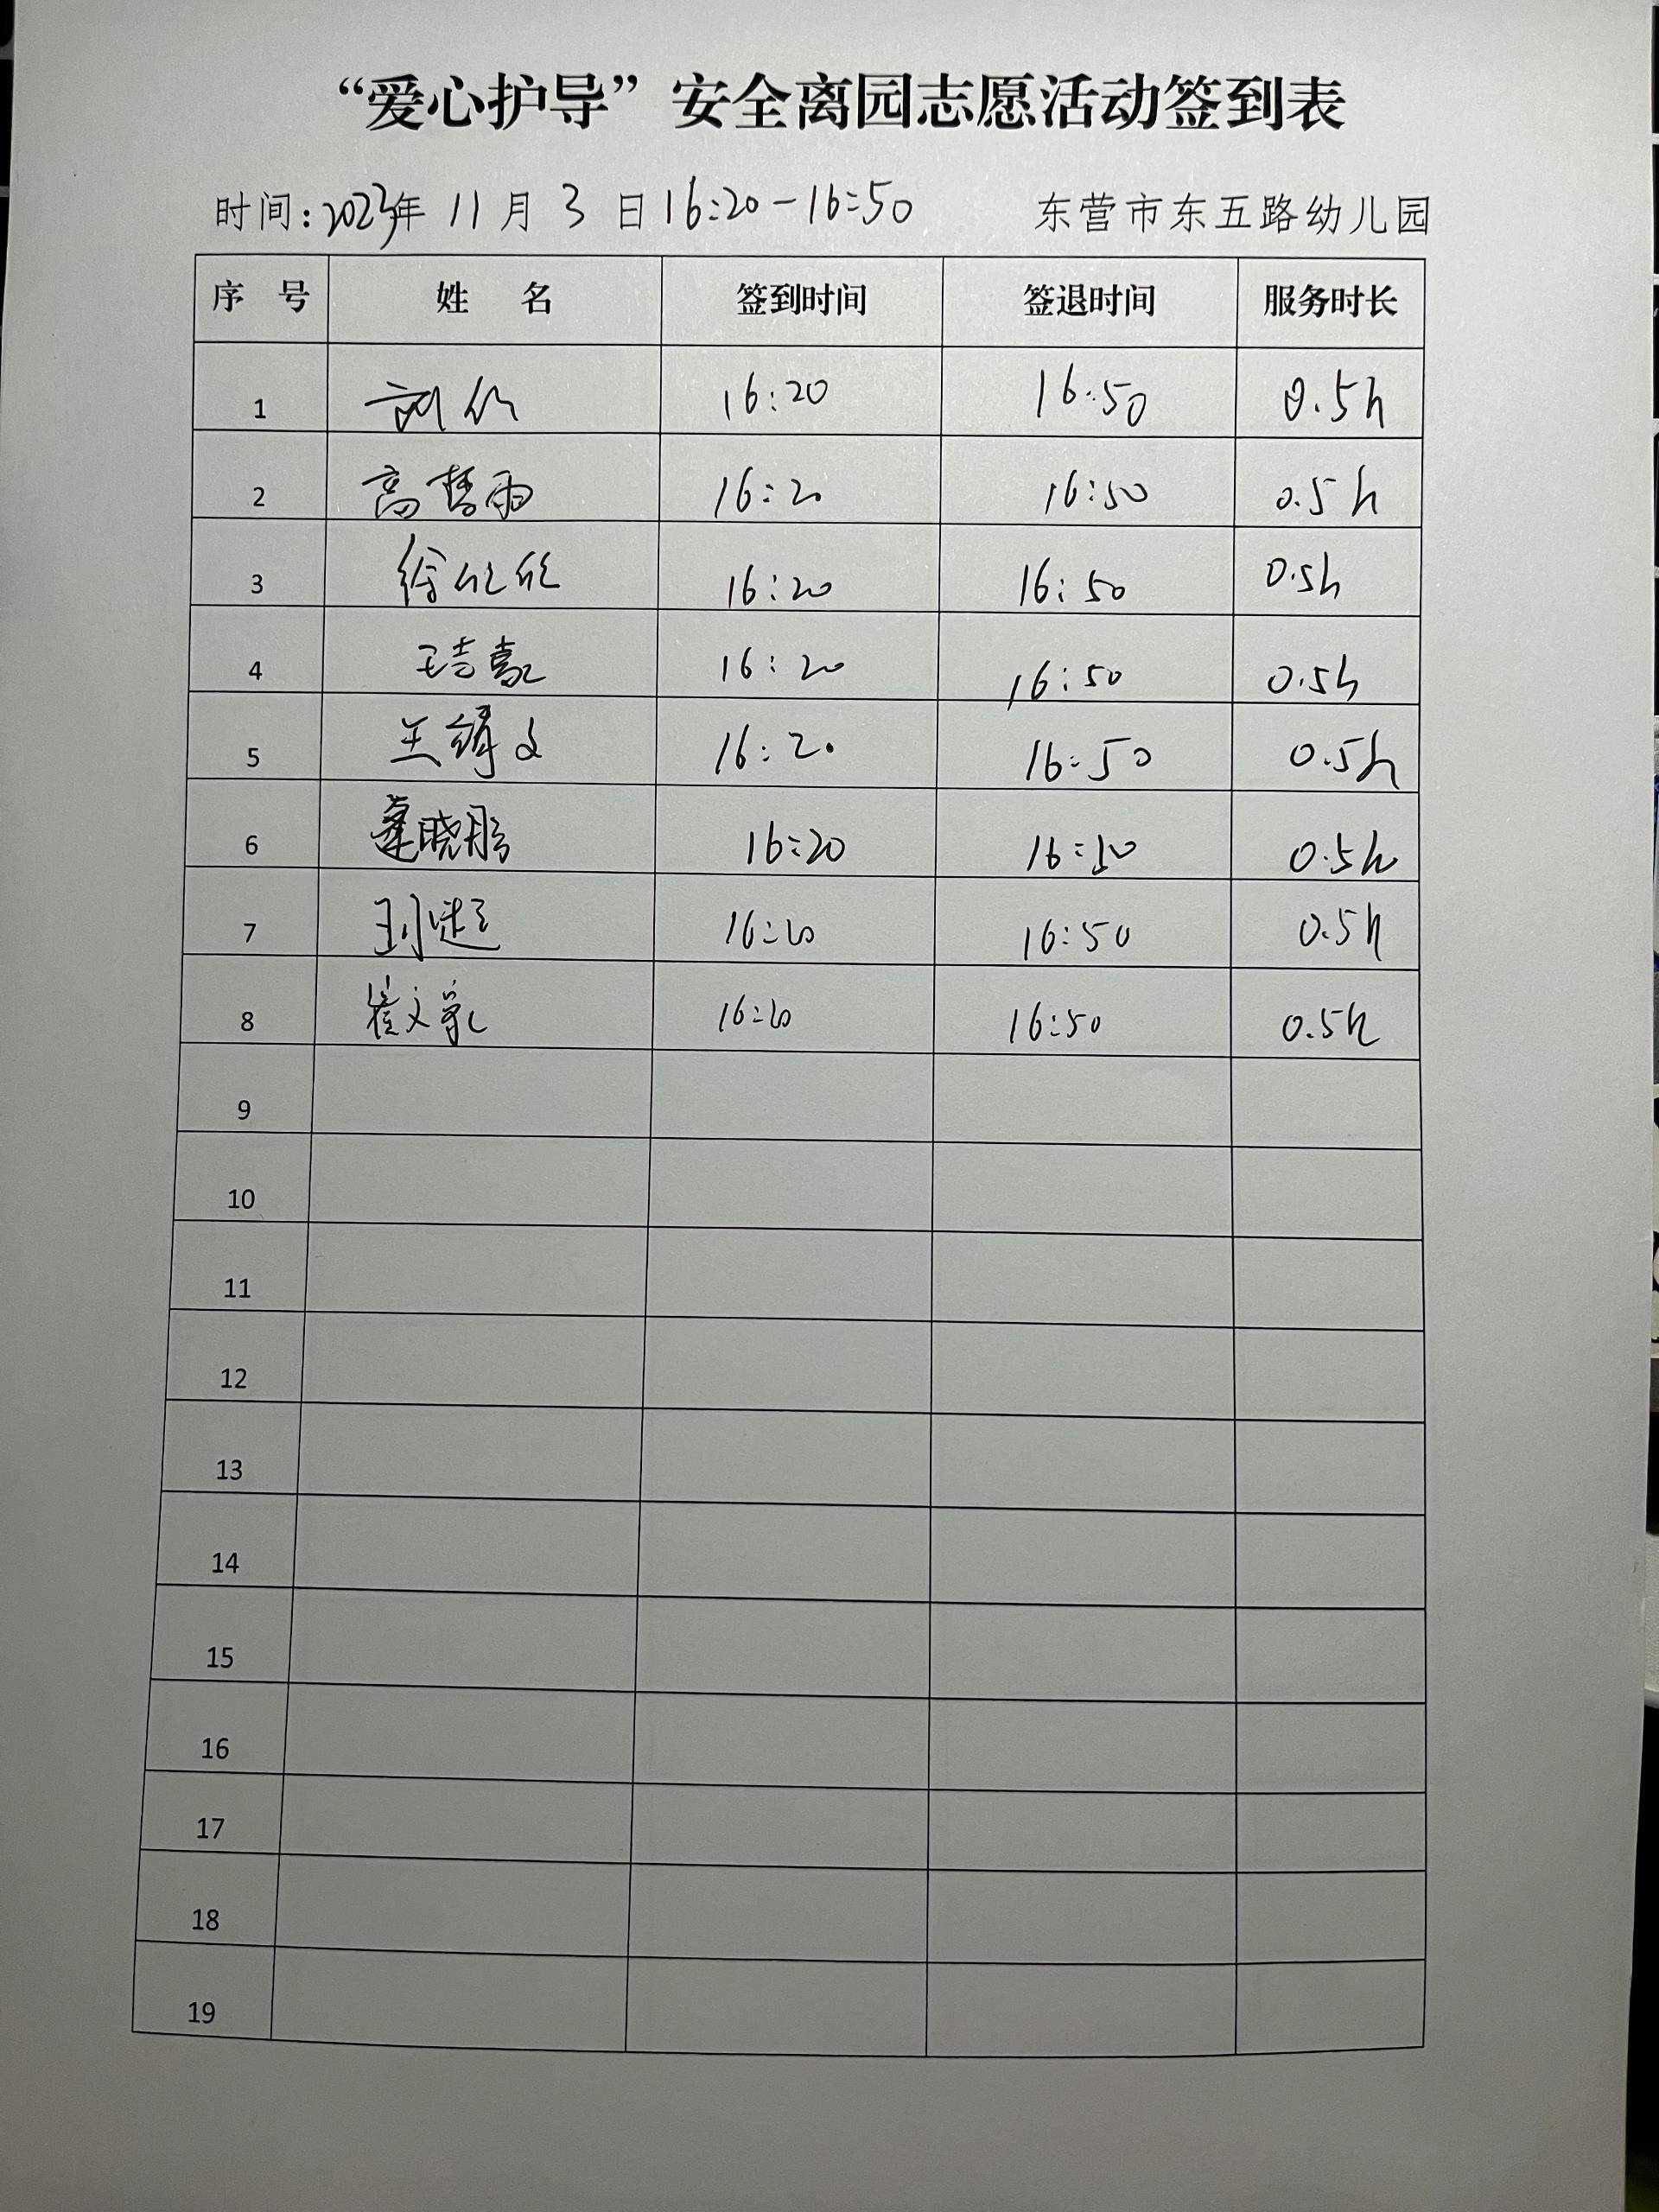 “爱心护导”安全离园志愿活动签到表
时间:2023年 11 月 3 日 16:20-16:50 东营市东五路幼儿园
序 号 姓 名 签到时间 签退时间 服务时长
1 16:20 16:50 0.5h
2 高誓雨 16:20 16:50 0.5h
3 徐欣欣 16:20 16:50 0.5h
4 16:20 16:50 0.5h
5 王 16:20 16:50 0.5h
6 晓彤 16:20 16:50 0.5h
7 16:20 16:50 0.5h
8 崔文 16:20 16:50 0.5h
9
10
11
12
13
14
15
16
17
18
19